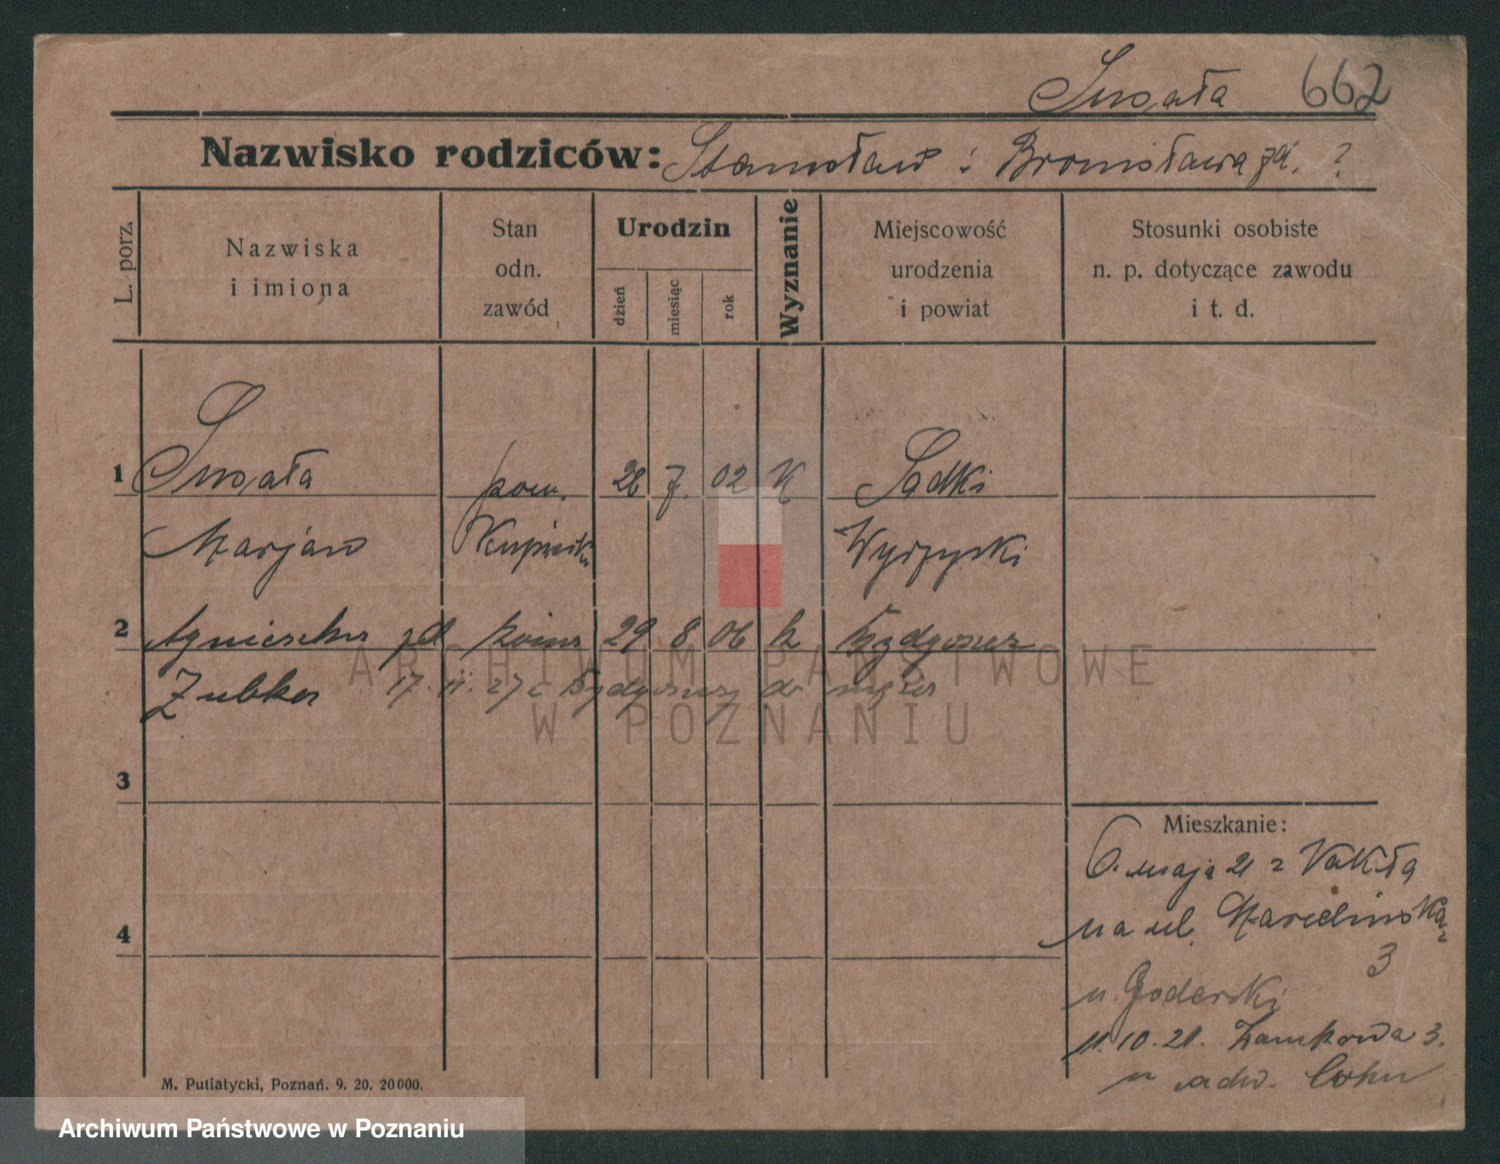 Smgała 662
Nazwisko rodziców: Stanisław i Bronisława zd. ?
L. porz.
Nazwiska i imiona
Stan odn. zawód
Urodzin
dzień
miesiąc
rok
Wyznanie
Miejscowość urodzenia i powiat
Stosunki osobiste n. p. dotyczące zawodu i t. d.
1 Smgała pom. 26 7. 02 K Sadki
Marjan Kupiecki Wyrzyski
2 Agnieszka zd 29 8 06 k Bydgoszcz
Zubka 17. 11. 27 z Bydgoszczy do męża
3
4
Mieszkanie:
6. maja 21 z Nakła
na ul. Marcelińska
3
u. Goderski
11. 10. 21. Zamkowa 3.
u adw. Cohn
M. Putiatycki, Poznań. 9. 20. 20000.
ARCHIWUM PAŃSTWOWE
W POZNANIU
Archiwum Państwowe w Poznaniu